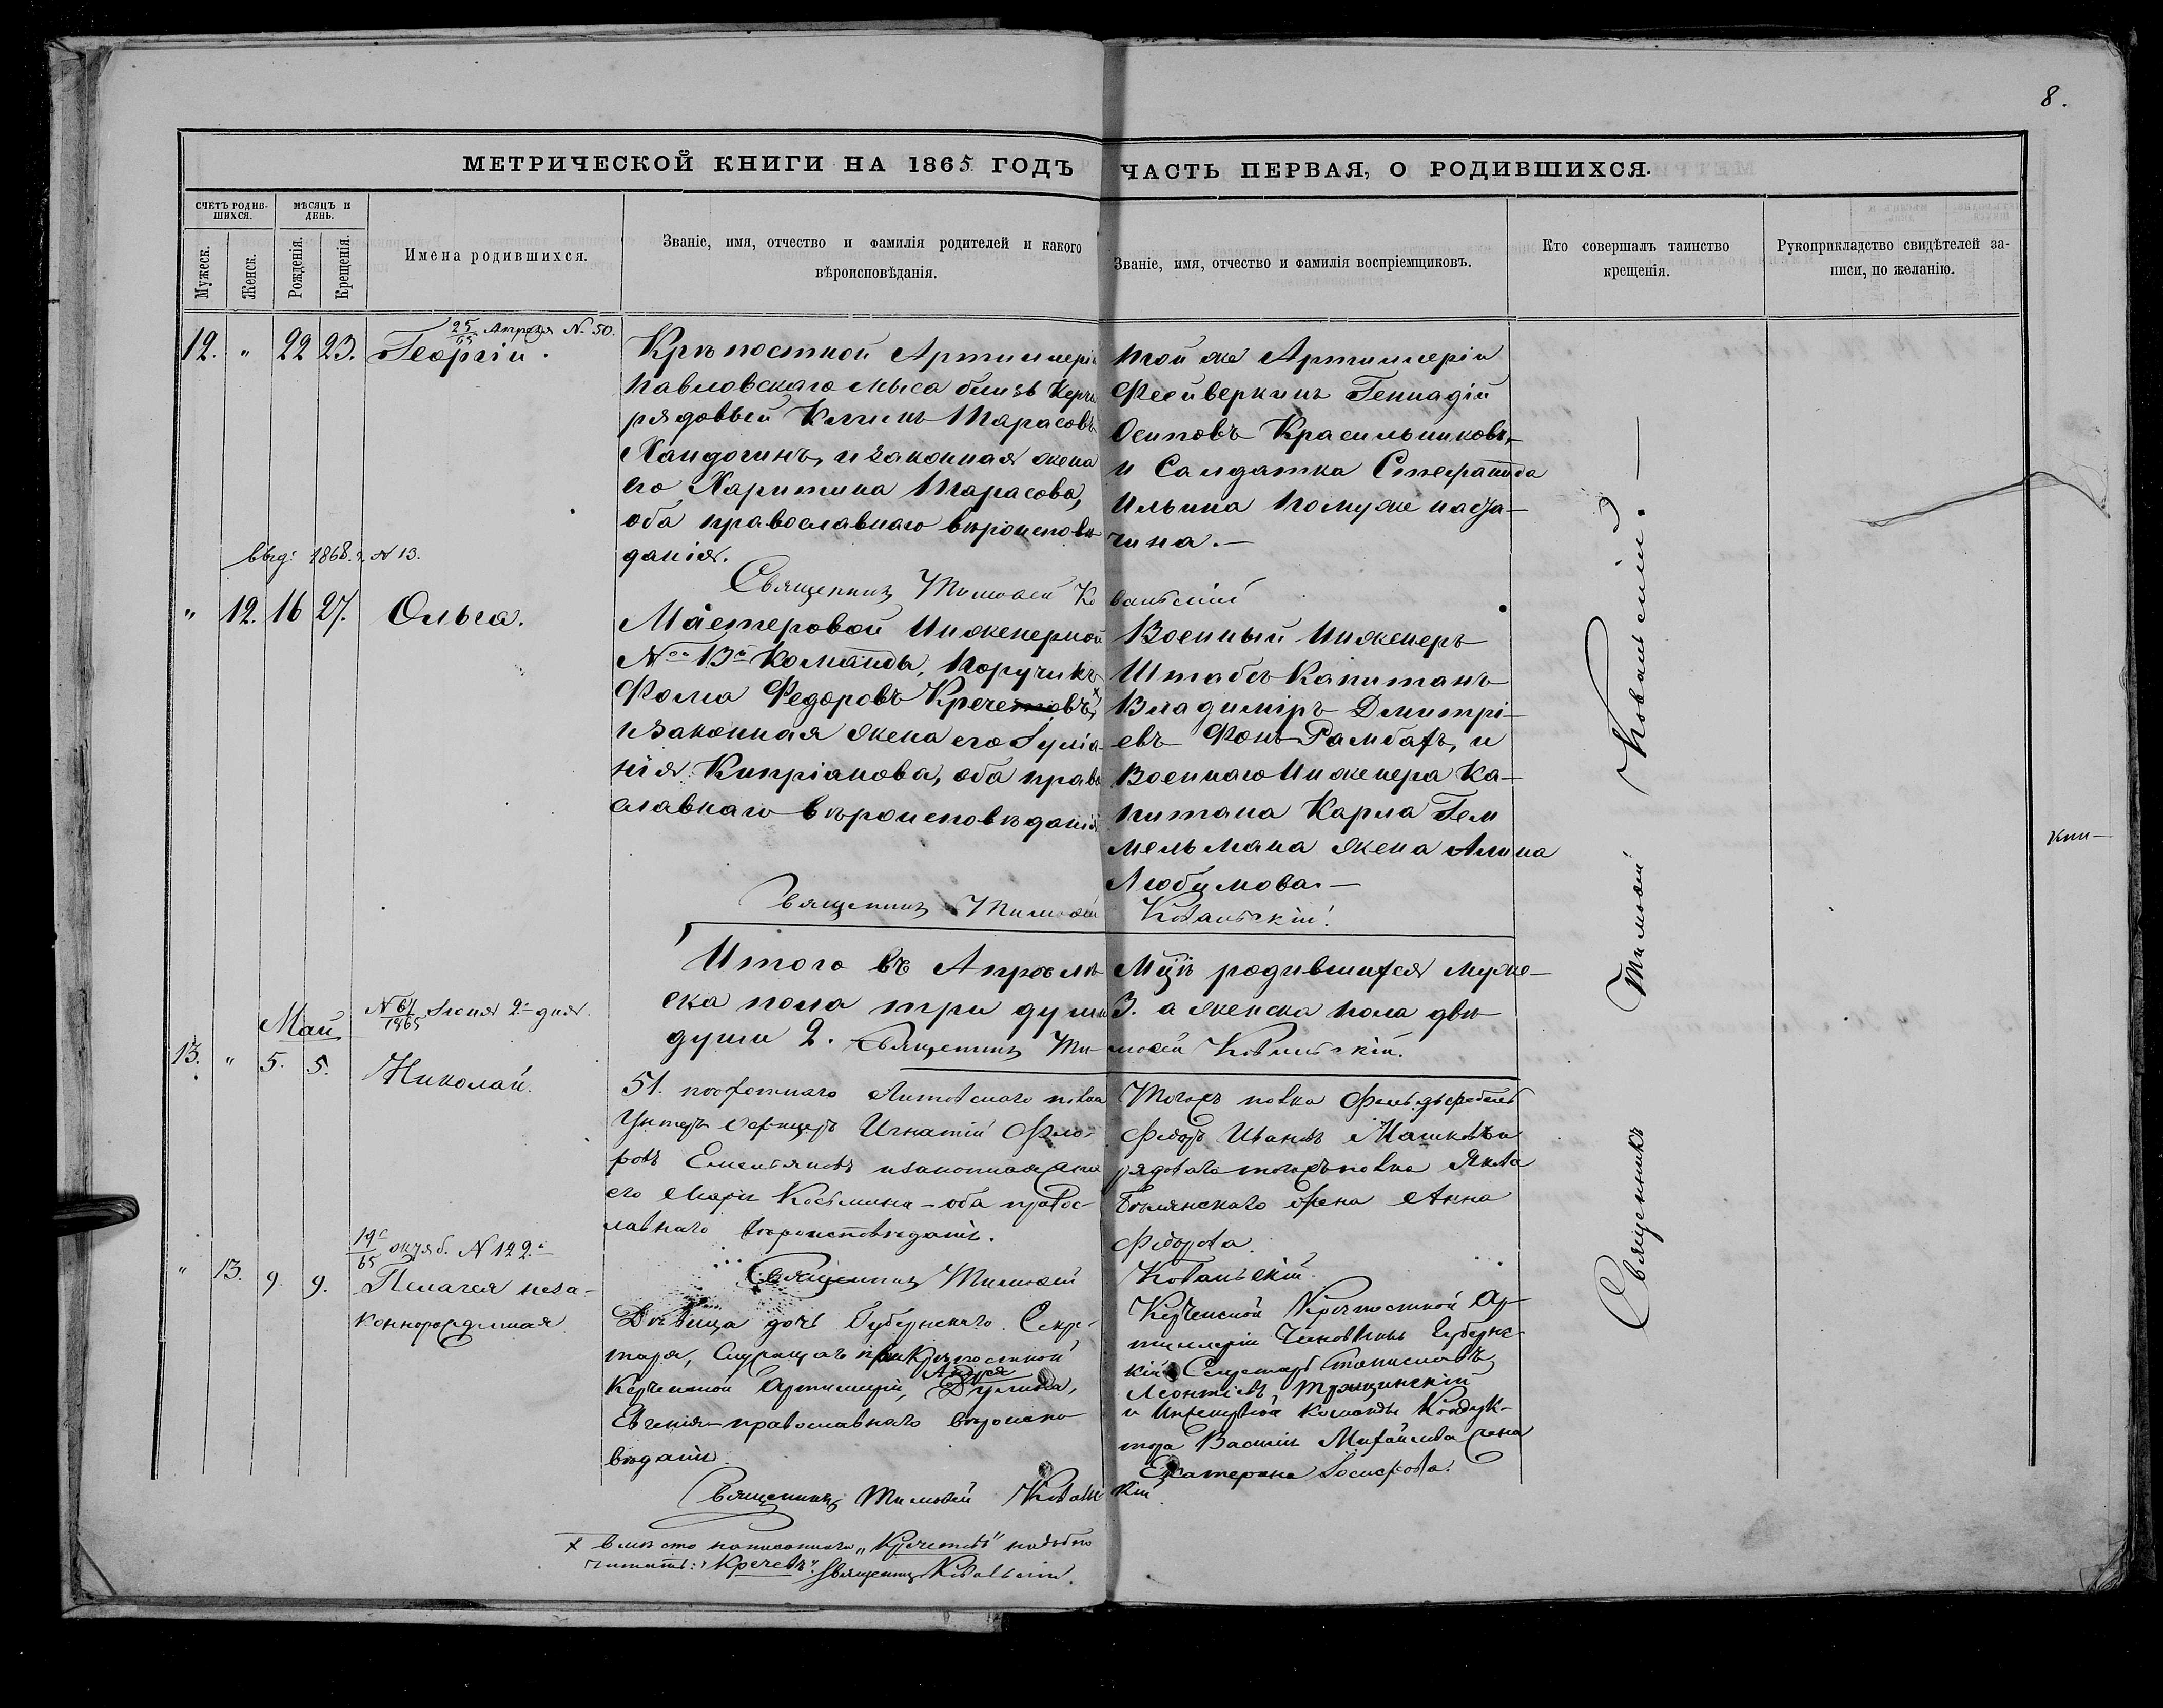 8.
МЕТРИЧЕСКОЙ КНИГИ НА 1865 ГОДЪ ЧАСТЬ ПЕРВАЯ, О РОДИВШИХСЯ.
СЧЕТЪ РОДИВ-
ШИХСЯ.
Мужеск.
Женск.
МѢСЯЦЪ И
ДЕНЬ.
Рожденія.
Крещенія.
Имена родившихся.
Званіе, имя, отчество и фамилія родителей и какого
вѣроисповѣданія.
Званіе, имя, отчество и фамилія воспріемщиковъ.
Кто совершалъ таинство
крещенія.
Рукоприкладство свидѣтелей за-
писи, по желанію.
25/65 Апрѣля № 50.
12. " 22 23. Георгій.
Крѣпостной Артиллеріи
Павловскаго мыса близъ Керчи
рядовый Климъ Тарасовъ
Хандогинъ, и законная жена
его Харитина Тарасова,
оба православнаго вѣроисповѣ-
данія.
Той же Артиллеріи
Фееиверкинъ Геннадій
Осиповъ Красильниковъ,
и Салдатка Стефанида
Ильина по мужѣ
чина.—
выд: 1868 г. № 13.
Священникъ Тимофей Ковальскій
" 12. 16 27. Ольга.
Мастеровой Инженерной
№ 13й Команды, Поручикъ
Фома Федоровъ Кречетовъ x
и законная жена его Іуліа-
нія Кипріанова, оба право
славнаго вѣроисповѣданія
Военный Инженеръ
Штабсъ Капитанъ
Владиміръ Дмитрі-
евъ Фонъ Рамбахъ, и
Военнаго Инженера Ка-
питана Карла Гем
мельмана жена Алина
Любимова.—
Священникъ Тимофей Ковальскій.
Итого въ Апрѣлѣ Мцѣ родившихся муже-
ска пола три души 3. а женска пола двѣ
души 2. Священникъ Тимофей Ковальскій.
№ 64/1865 Іюня 2го дня.
Май
13. " 5. 5. Николай.
51. пѣхотнаго Литовскаго полка
Унтеръ Офицеръ Игнатій Фло-
ровъ Емельяновъ и законная жена
его Марія Косьмина - оба правос-
лавнаго вѣроисповѣданія.
Тогожъ полка Фельдфебель
Федоръ Ивановъ Машковъ и
рядоваго тогожъ полка Якова
жена Анна
Федорова.
Священникъ Тимофей Ковальскій.
19го/65 октяб. № 122.
" 13. 9. 9. Пелагея неза-
коннорожденная
Дѣвица дочь Губернскаго Секре-
таря, Служащаго при Крѣпостной
Керченской Артиллеріи, Андрея
Дулина,
Евгенія - православнаго вѣроиспо
вѣданія.
Керченской Крѣпостной Ар-
тиллеріи Чиновникъ Губернс-
кій Секретарь Станиславъ
Леонтіевъ
и Инженерной команды Кондук-
тора Василія Михайлова жена
Екатерина Іосифова.
Священникъ Тимофей Ковальскій.
x вмѣсто написаннаго „Кречетовъ" надобно
читать: „Кречевъ". Священникъ Ковальскій.
Священникъ Тимофей Ковальскій.—